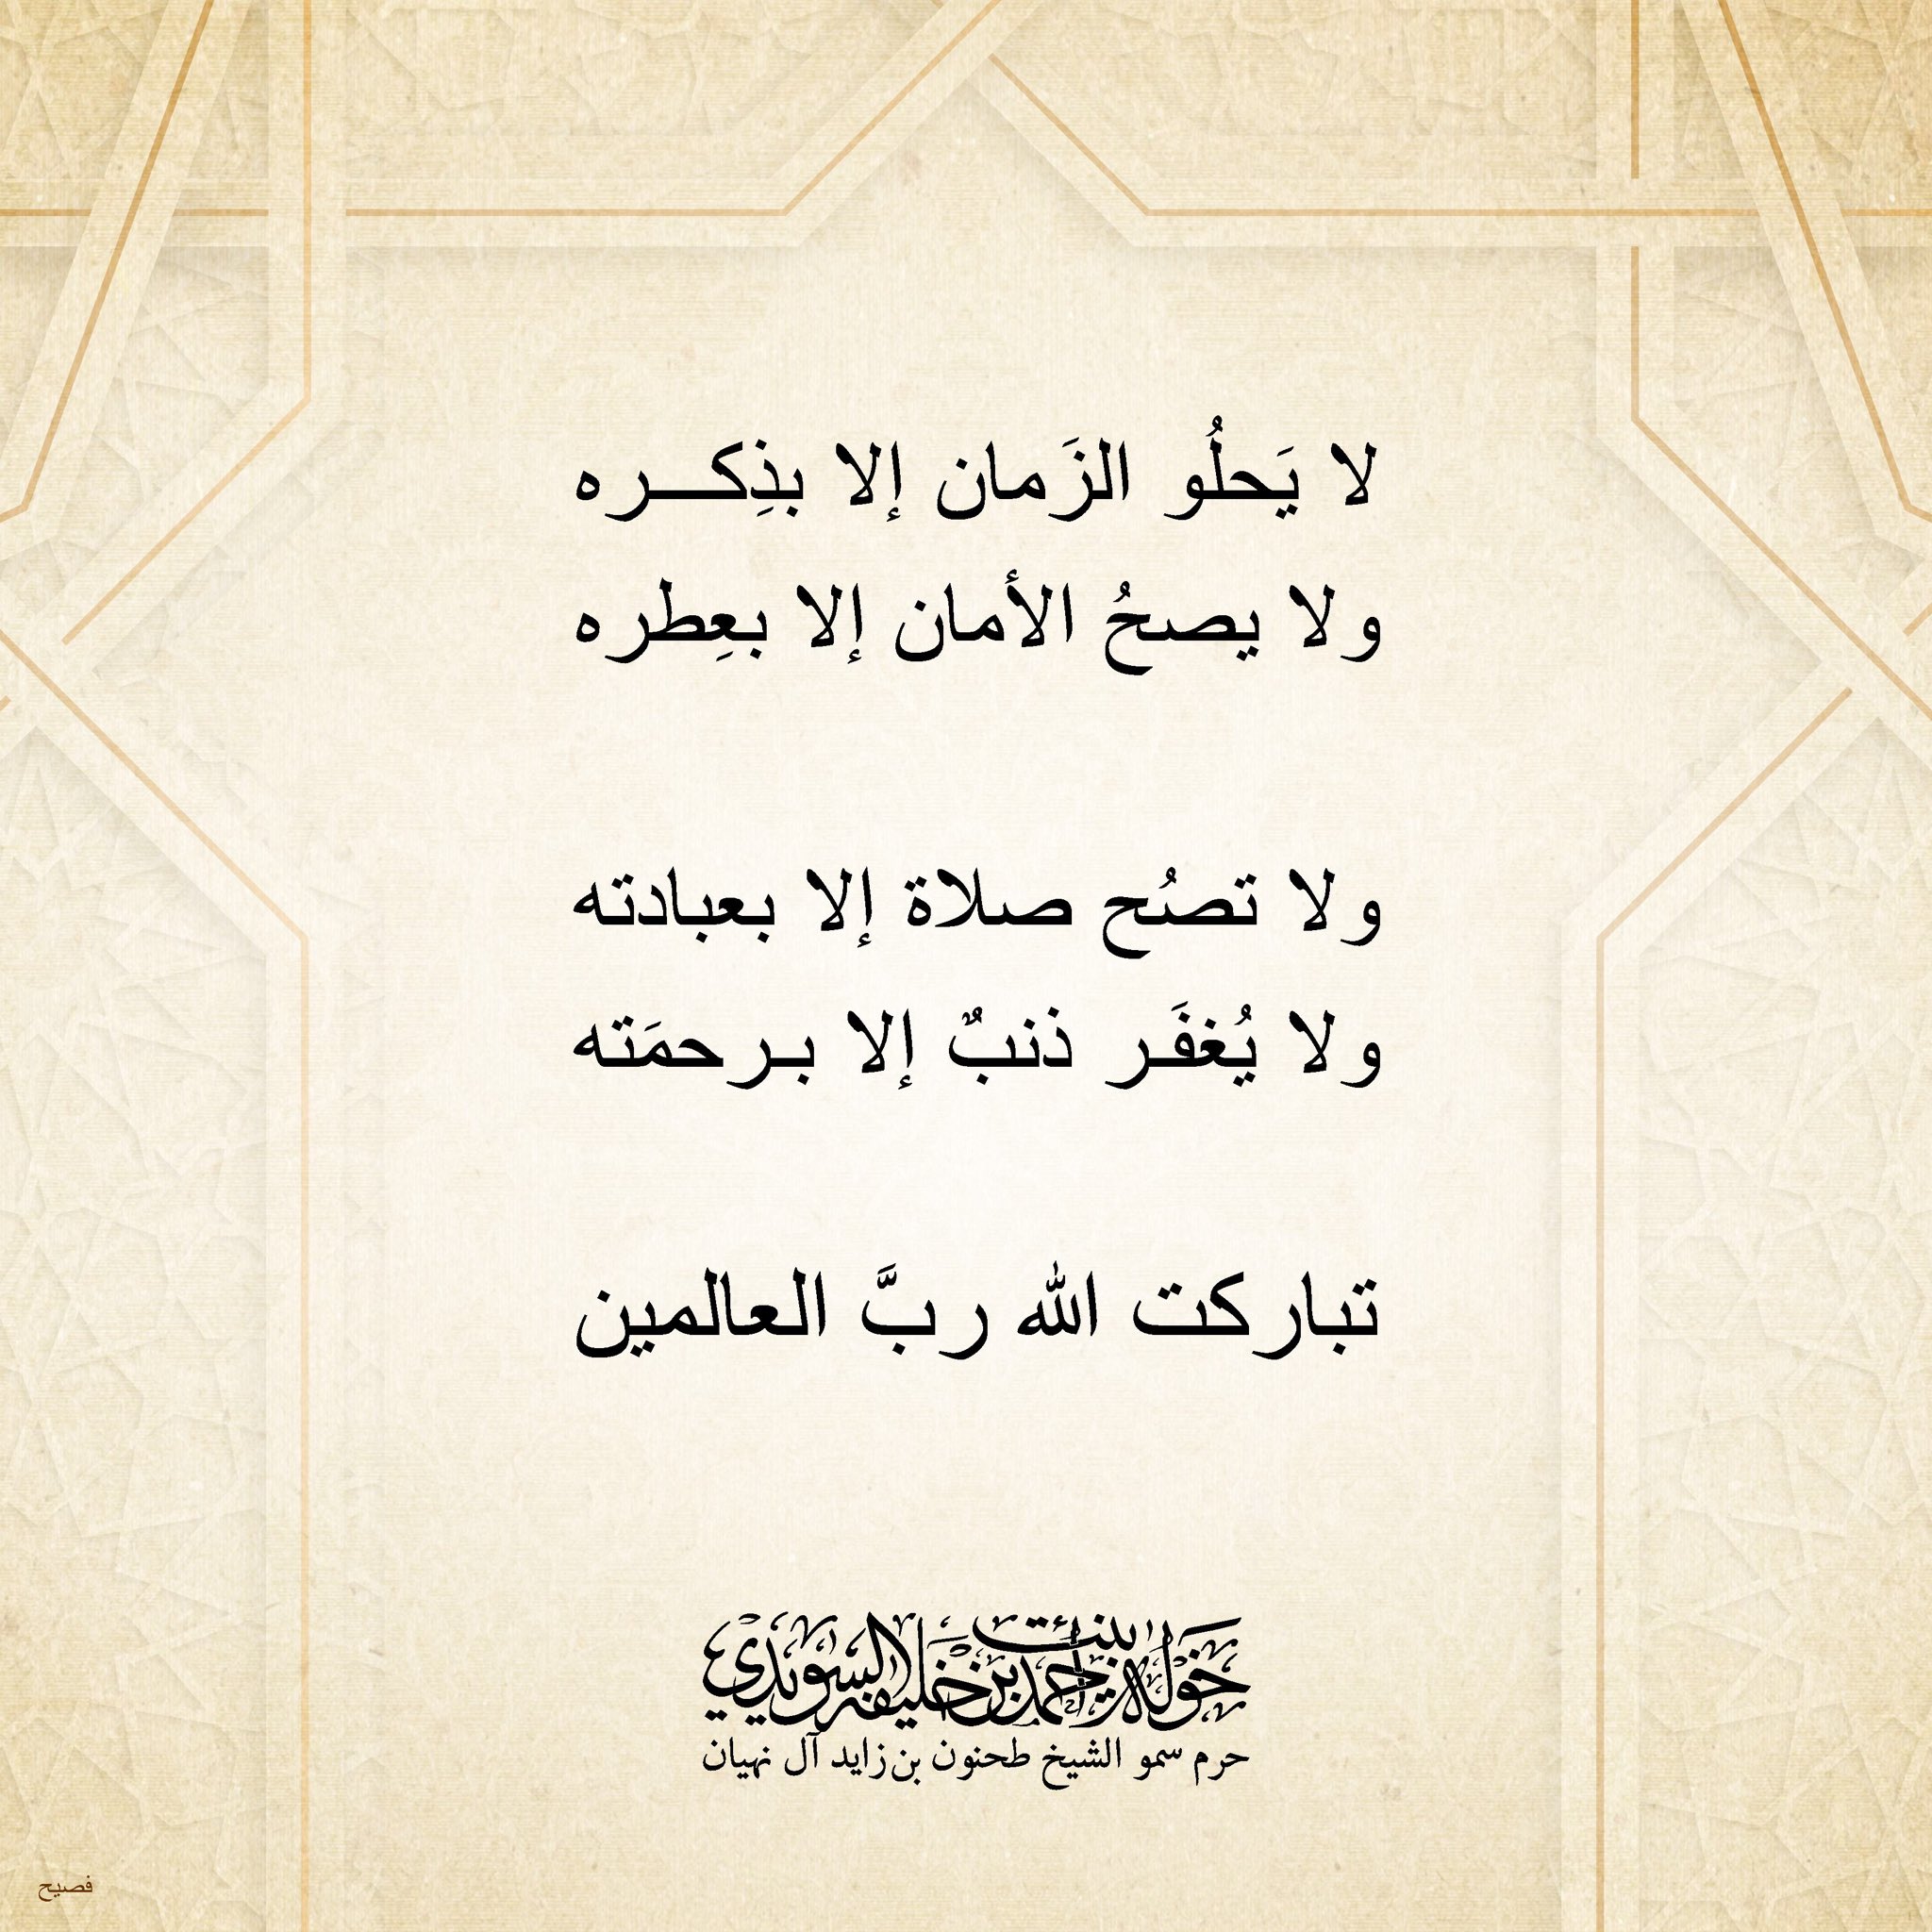 لا يَحلُو الزَمان إلا بذِكـــره
ولا يصحُ الأمان إلا بعِطره
ولا تصُح صلاة إلا بعبادته
ولا يُغفَر ذنبٌ إلا برحمَته
تباركت الله ربَّ العالمين
خولة بنت أحمد بن خليفة السويدي
حرم سمو الشيخ طحنون بن زايد آل نهيان
فصيح